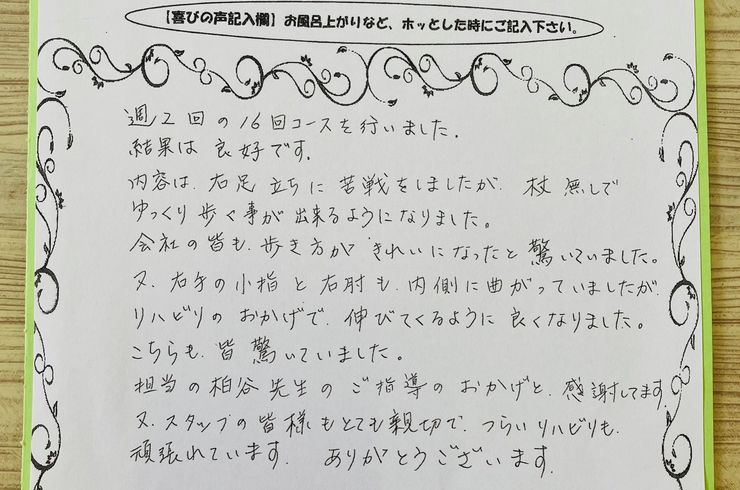 【喜びの声記入欄】お風呂上がりなど、ホッとした時にご記入下さい。
週2回の16回コースを行いました.
結果は良好です.
内容は、右足立ちに苦戦をしましたが、杖無しで
ゆっくり歩く事が出来るようになりました。
会社の皆も、歩き方がきれいになったと驚いていました。
又、右手の小指と右肘も、内側に曲がっていましたが、
リハビリのおかげで、伸びてくるように良くなりました。
こちらも、皆驚いていました。
担当の柏谷先生のご指導のおかげと、感謝してます。
又、スタッフの皆様もとても親切で、つらいリハビリも、
頑張れています. ありがとうございます.